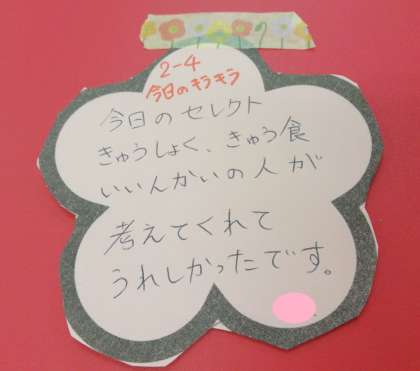 2-4
今日のキラキラ
今日のセレクト
きゅうしょく、きゅう食
いいんかいの人が
考えてくれて
うれしかったです。